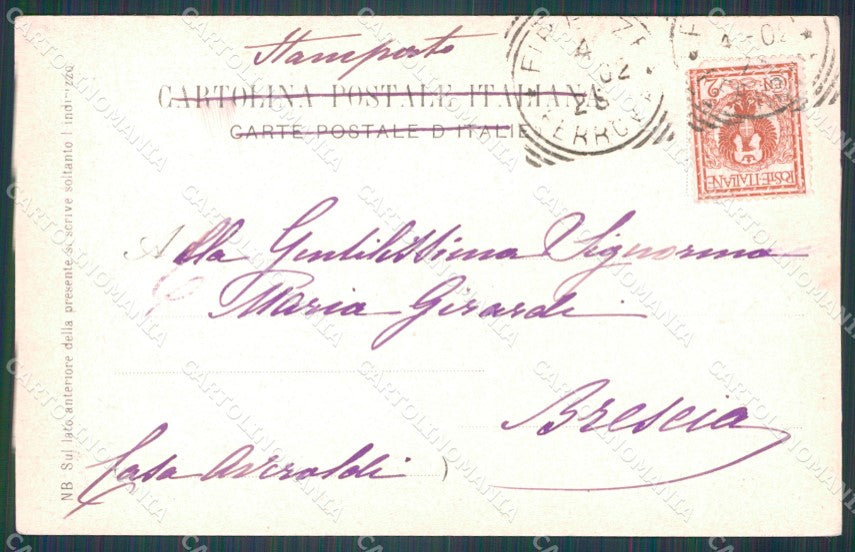 Stamporto
CARTOLINA POSTALE ITALIANA
CARTE POSTALE D ITALIE
FIRENZE
4 02
2S
FERROVIA
4 02
POSTE·ITALIANE
2
Alla Gentilissima Signorina
Maria Girardi
Brescia
Casa Averoldi
NB Sul lato anteriore della presente si scrive soltanto l indirizzo
CARTOLINOMANIA